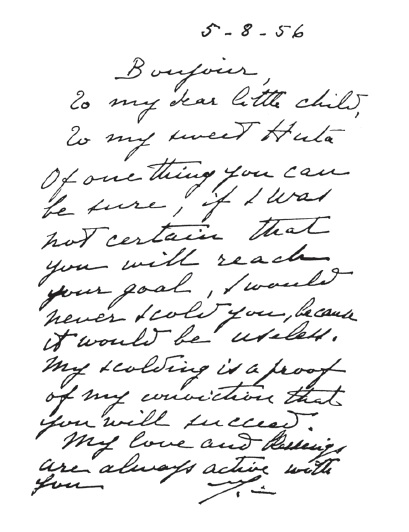 5-8-56
Bonjour,
To my dear little child,
To my sweet Huta
Of one thing you can
be sure, if I was
not certain that
you will reach
your goal, I would
never scold you, because
it would be useless.
My scolding is a proof
of my conviction that
you will succeed.
My love and blessings
are always active with
you